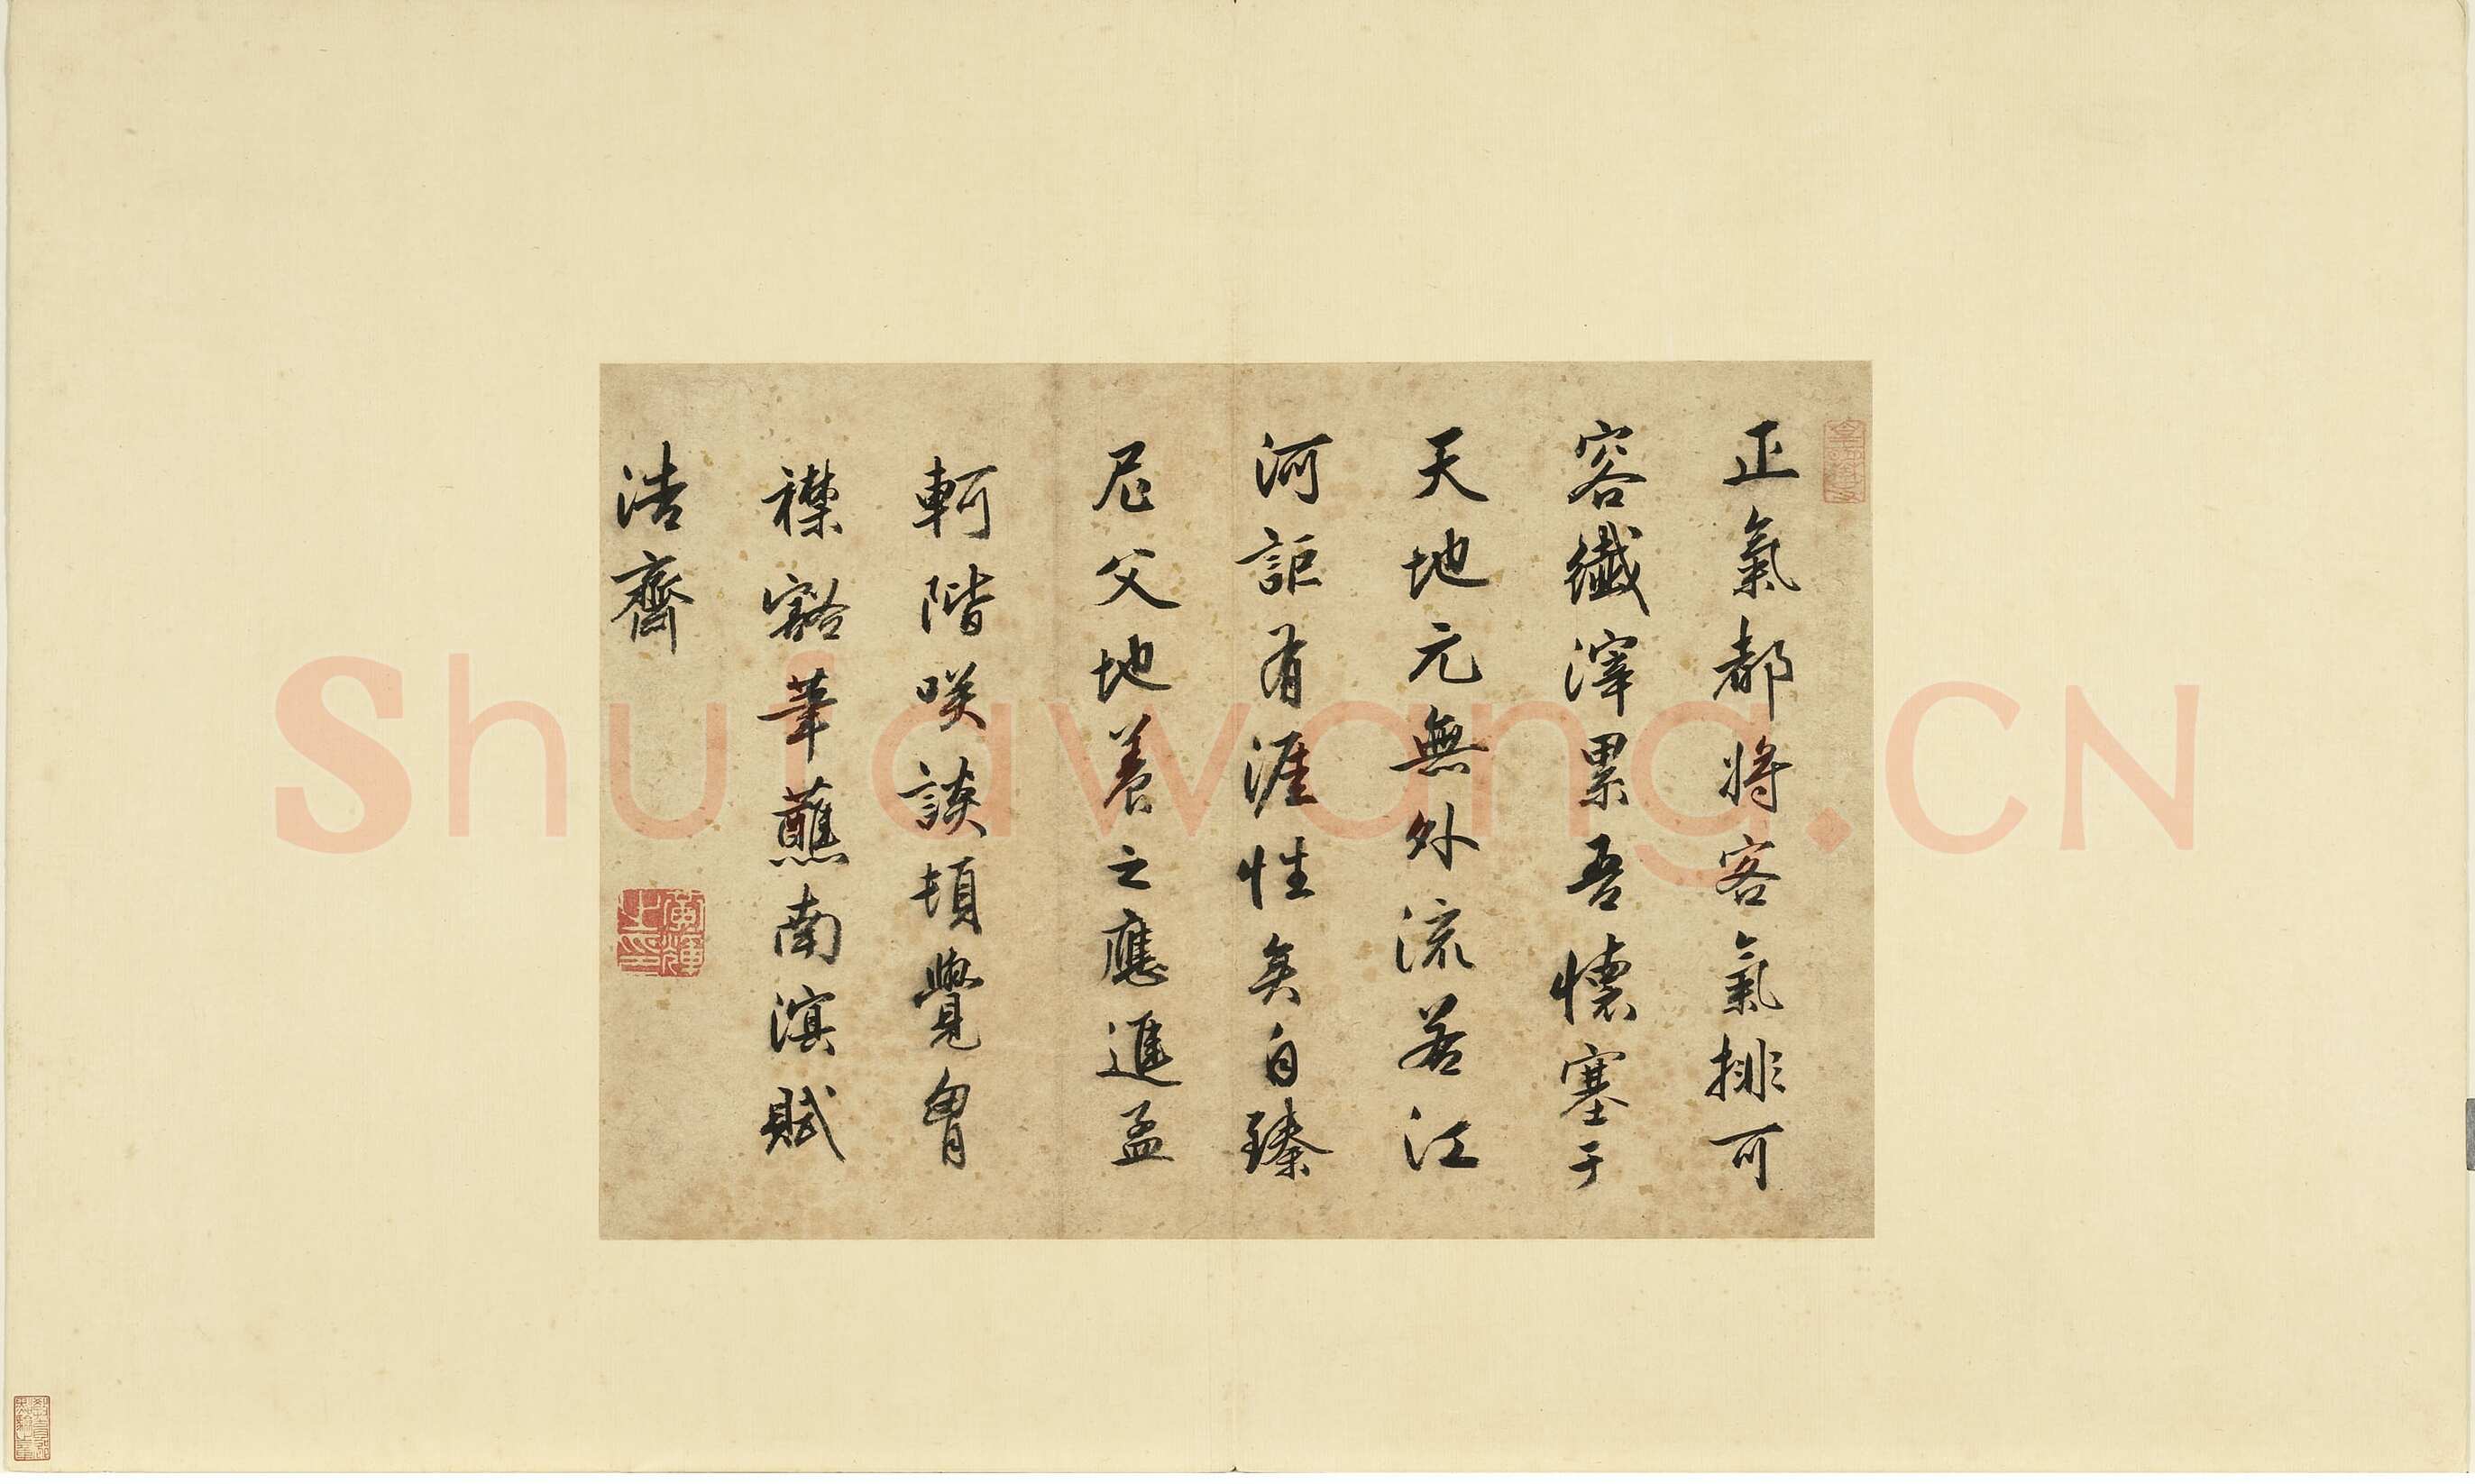 正氣都將客氣排可
容纖滓累吾懷塞于
天地元無外流若江
河詎有涯性矣自臻
尼父地養之應進孟
軻階咲談頓覺胷
襟豁筆蘸南溟賦
浩齋
Shufawang.CN